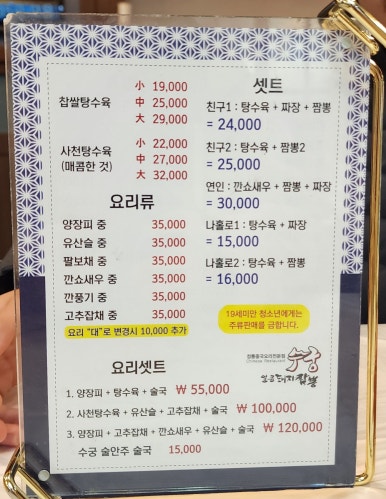 찹쌀탕수육
小 19,000
中 25,000
大 29,000
사천탕수육
(매콤한 것)
小 22,000
中 27,000
大 32,000
요리류
양장피 중 35,000
유산슬 중 35,000
팔보채 중 35,000
깐쇼새우 중 35,000
깐풍기 중 35,000
고추잡채 중 35,000
요리 "대"로 변경시 10,000 추가
셋트
친구1 : 탕수육 + 짜장 + 짬뽕
= 24,000
친구2 : 탕수육 + 짬뽕2
= 25,000
연인 : 깐쇼새우 + 짬뽕 + 짜장
= 30,000
나홀로1 : 탕수육 + 짜장
= 15,000
나홀로2 : 탕수육 + 짬뽕
= 16,000
19세미만 청소년에게는
주류판매를 금합니다.
요리셋트
정통중국요리전문점
Chinese Restaurant
수궁
짬뽕
1. 양장피 + 탕수육 + 술국 ₩ 55,000
2. 사천탕수육 + 유산슬 + 고추잡채 + 술국 ₩ 100,000
3. 양장피 + 고추잡채 + 깐쇼새우 + 유산슬 + 술국 ₩ 120,000
수궁 술안주 술국 15,000